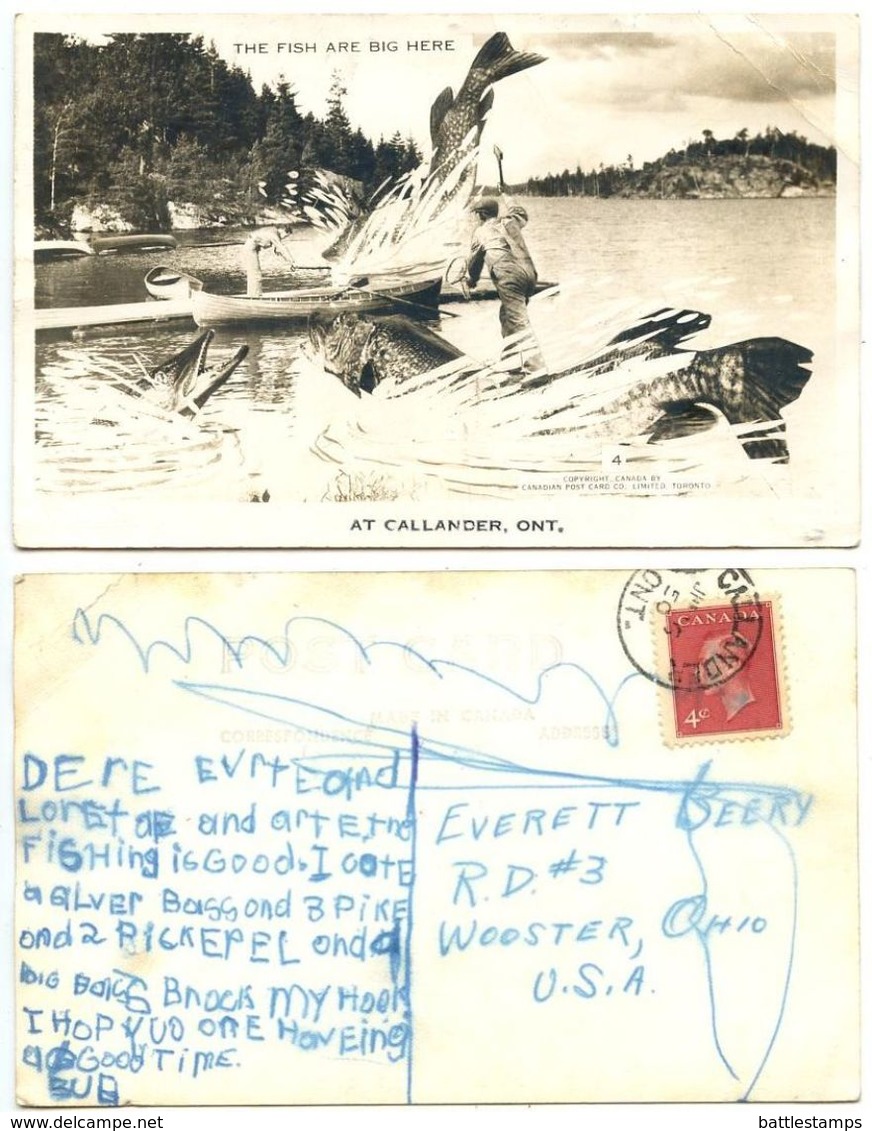 THE FISH ARE BIG HERE
4
COPYRIGHT, CANADA BY
CANADIAN POST CARD CO. LIMITED, TORONTO
AT CALLANDER, ONT.
POST CARD
MADE IN CANADA
CORRESPONDENCE
ADDRESS
CALLANDER
ONT.
CANADA
4¢
DERE EVrtE and
LorEtaE and artE.tho
FISHing is GOOD. I cate
a aLver Bass and 3 PIKE
and 2 PICKEREL and a
BIG Bass Brock MY Hook
I HOP YUO ARE HaVEing
a GOOD TIME.
BUD
EVERETT BEERY
R.D. #3
WOOSTER, OHIO
U.S.A.
battlestamps